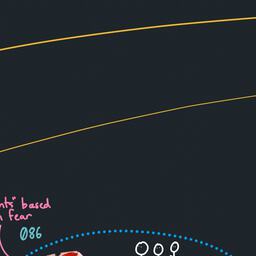 based
fear
086